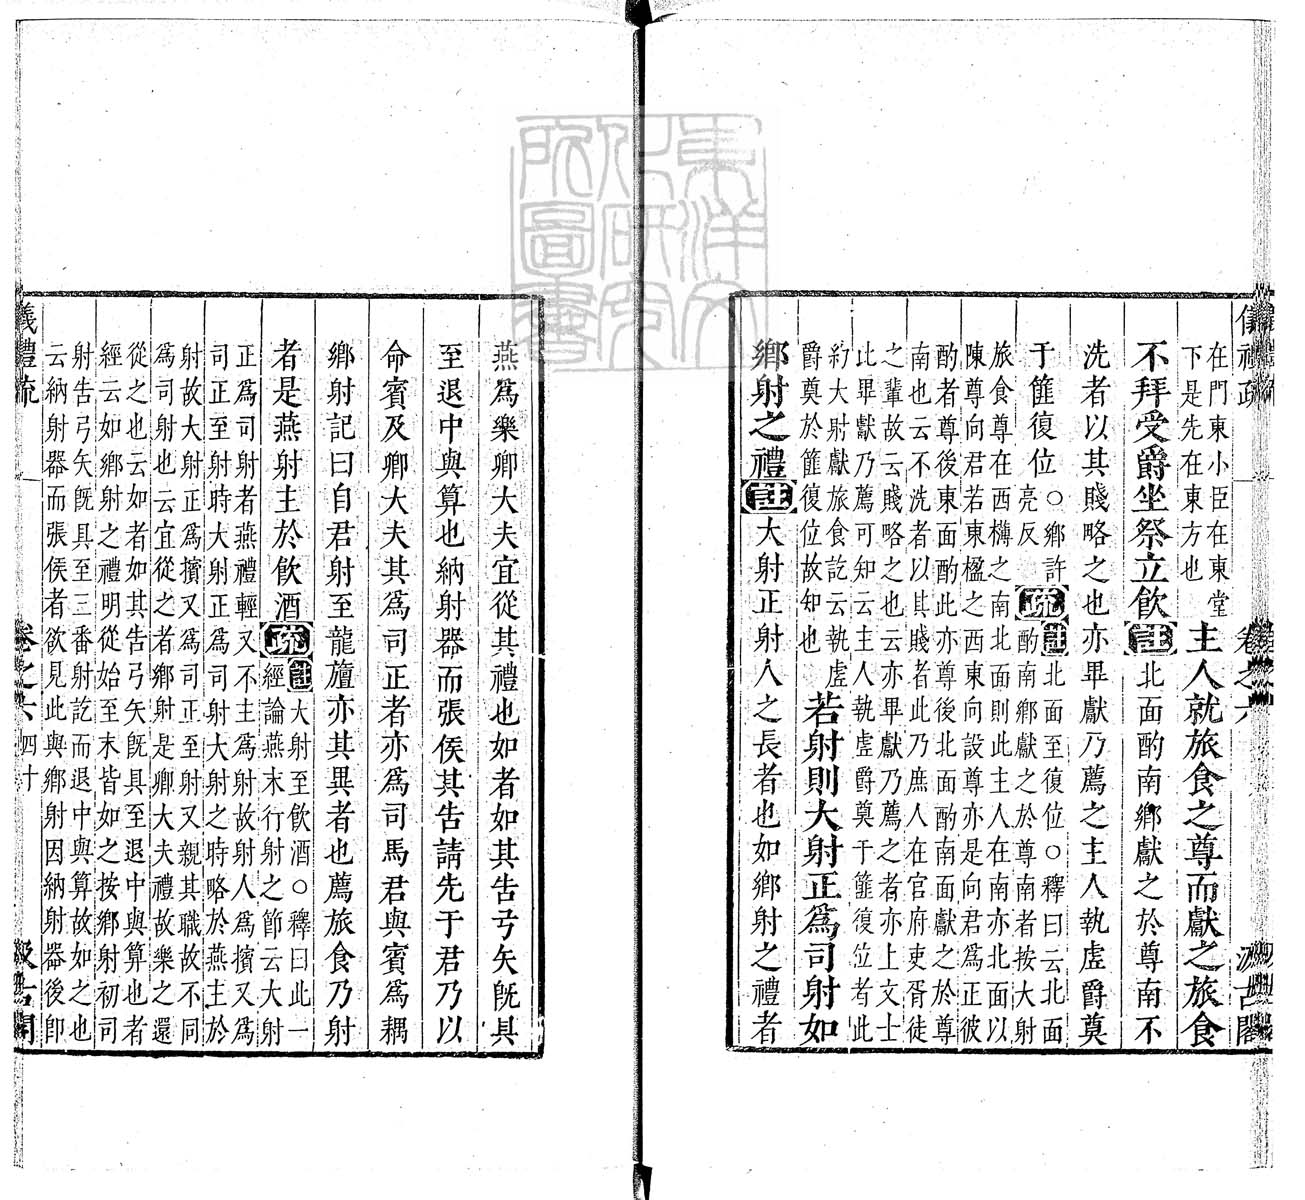 儀禮疏 卷之六 汲古閣
在門東小臣在東堂
下是先在東方也
主人就旅食之尊而獻之旅食
不拜受爵坐祭立飲註北面酌南鄉獻之於尊南不
洗者以其賤略之也亦畢獻乃薦之主人執虛爵奠
于篚復位
○鄉許
亮反
疏
註北面至復位○釋曰云北面
酌南鄉獻之於尊南者按大射
旅食尊在西鏄之南北面則此主人在南亦北面以
陳尊向君若東楹之西東向設尊亦是向君爲正彼
酌者尊後東面酌此亦尊後北面酌南面獻之於尊
南也云不洗者以其賤者此乃庶人在官府吏胥徒
之輩故云賤略之也云亦畢獻乃薦之者亦上文士
此畢獻乃薦可知云主人執虛爵奠于篚復位者此
約大射獻旅食訖云執虛
爵奠於篚復位故知也
若射則大射正爲司射如
鄉射之禮註大射正射人之長者也如鄉射之禮者
燕爲樂卿大夫宜從其禮也如者如其告弓矢旣具
至退中與算也納射器而張侯其告請先于君乃以
命賓及卿大夫其爲司正者亦爲司馬君與賓爲耦
鄉射記曰自君射至龍旜亦其異者也薦旅食乃射
者是燕射主於飲酒疏
註大射至飲酒○釋曰此一
經論燕末行射之節云大射
正爲司射者燕禮輕又不主爲射故射人爲擯又爲
司正至射時大射正爲司射大射之時略於燕主於
射故大射正爲擯又爲司正至射又親其職故不同
爲司射也云宜從之者鄉射是卿大夫禮故樂之還
從之也云如者如其告弓矢旣具至退中與算也者
經云如鄉射之禮明從始至末皆如之按鄉射初司
射告弓矢旣具至三番射訖而退中與算故如之也
云納射器而張侯者欲見此與鄉射因納射器後卽
儀禮疏 卷之六 四十 汲古閣
東洋文化研究所圖書